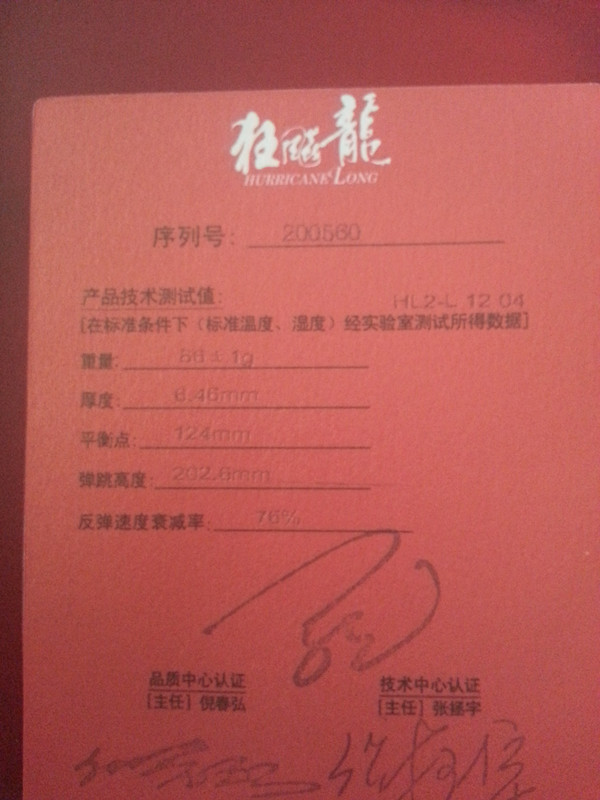 狂飚龍
HURRICANE LONG
序列号: 200560
产品技术测试值: HL2-L 12 04
[在标准条件下（标准温度、湿度）经实验室测试所得数据]
重量: 86±1g
厚度: 6.46mm
平衡点: 124mm
弹跳高度: 202.6mm
反弹速度衰减率: 76%
品质中心认证 技术中心认证
[主任] 倪春弘 [主任] 张拯宇